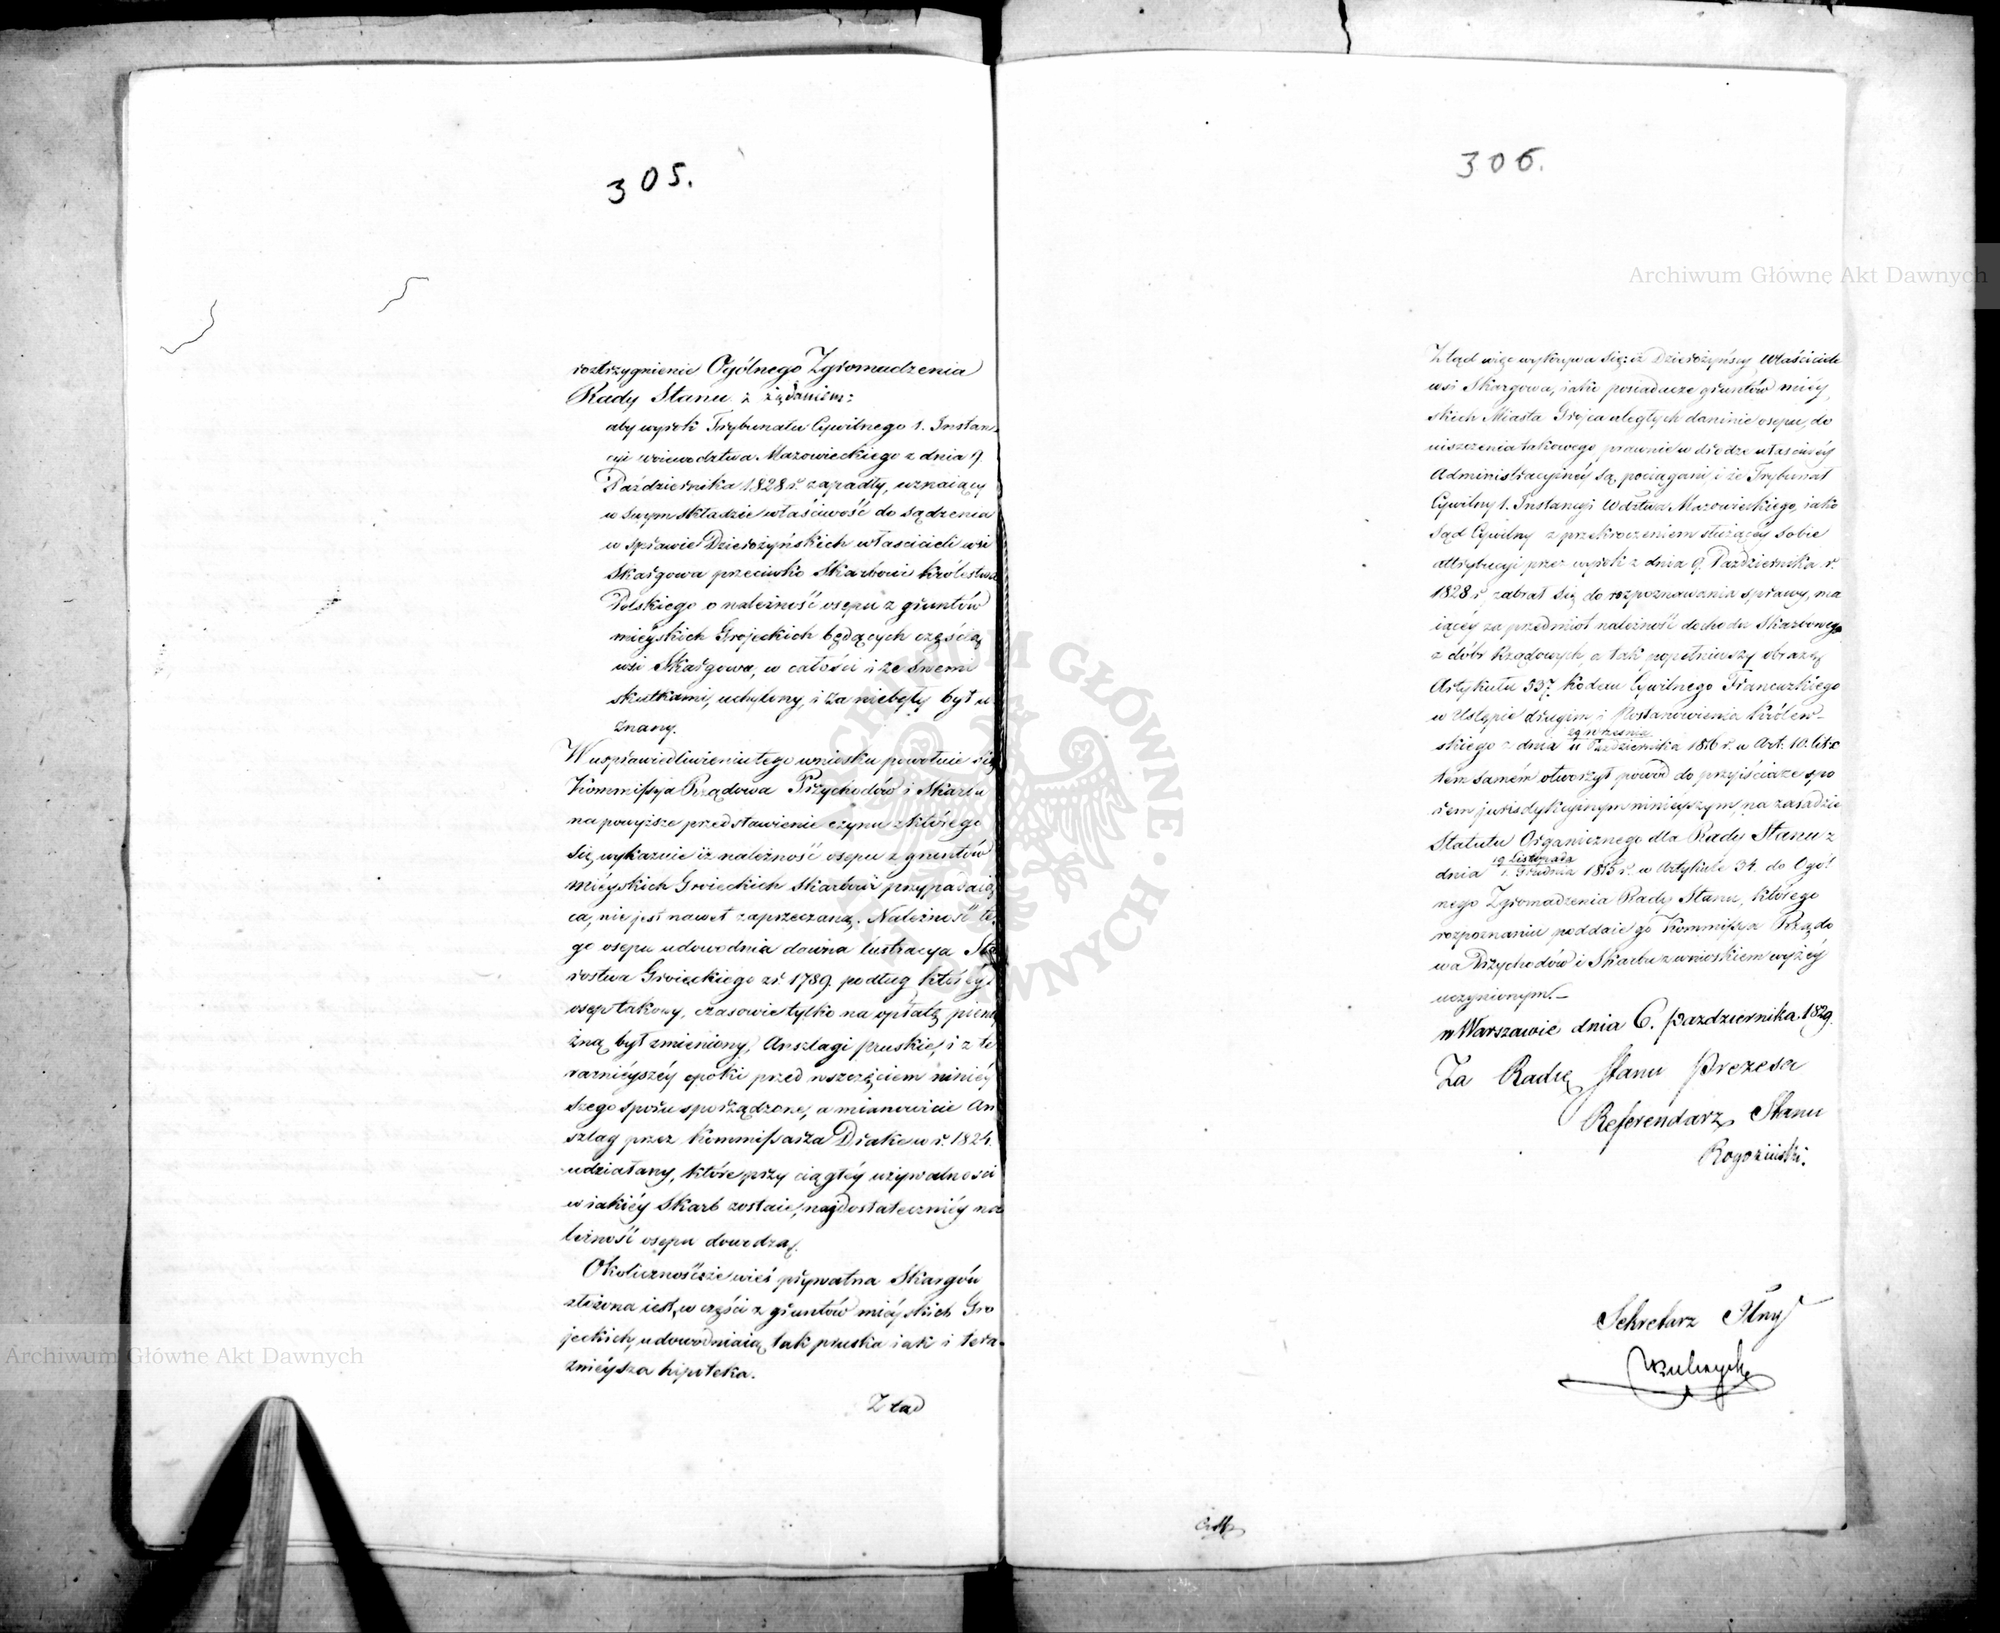 305.
roztrzygnienie Ogólnego Zgromadzenia
Rady Stanu z żądaniem:
aby wyrok Trybunału Cywilnego 1. Instan-
cyi woiewodztwa Mazowieckiego z dnia 9.
Października 1828 r. zapadły, uznaiący
w swym składzie właściwość do sądzenia
w sprawie Dzierożyńskich właścicieli wsi
Skargowa przeciwko Skarbowi Królestwa
Polskiego o należność osepu z gruntów
mieyskich Grojeckich będących częścią
wsi Skargowa, w całości i ze swemi
skutkami, uchylony, i za niebyły był u-
znany.
W usprawiedliwieniu tego wniosku powołuie się
Kommissya Rządowa Przychodów i Skarbu
na powyższe przedstawienie czynu z którego
się wykazuie iż należność osepu z gruntów
mieyskich Groieckich Skarbowi przypadaią
ca, nie jest nawet zaprzeczaną. Należność te
go osepu udowodnia dawna lustracya Sta
rostwa Groieckiego z r. 1789. podług któréy
osep takowy, czasowie tylko na opłatę pienię
żną był zmieniony, Anszlagi pruskie, i z te
raznieyszéy epoki przed wszczęciem niniéy
szego sporu sporządzone, a mianowicie An
szlag przez Kommissarza Drake w r. 1824.
udziałany, które przy ciągłéy używalności
w iakiéy Skarb zostaie, naydostateczniéy na
leżność osepu dowodzą.
Okoliczność że wieś prywatna Skargów
złożona iest, w części z gruntów mieyskich Gro
jeckich, udowodniaią tak pruska iak i tera-
znieysza hipoteka.
Z tąd
306.
Z tąd więc wykrywa się: iż Dzierożyńscy Właściciele
wsi Skargowa, iako posiadacze gruntów miéy
skich Miasta Grojca uległych daninie osepu, do
uiszczenia takowego prawnie w drodze właściwéy
Administracyinéy są pociągani, i że Trybunał
Cywilny 1. Instancyi Wdztwa Mazowieckiego, iako
Sąd Cywilny z przekroczeniem służącéy sobie
attrybucyi przez wyrok z dnia 9. Października r.
1828 r. zabrał się do rozpoznawania sprawy, ma
iącéy za przedmiot należność dochodu Skarbowego
z dóbr Rządowych, a tak popełniwszy obrazę
Artykułu 537. Kodexu Cywilnego Francuzkiego
w Ustępie drugim i Postanowienia Królew-
29 Września
skiego z dnia 11 Października 1816 r. w Art. 10. lit. c
tém samém otworzył powód do przyiścia ze spo
rem jurisdykcyinym niniejszym, na zasadzie
Statutu Organicznego dla Rady Stanu z
19 Listopada
dnia 1. Grudnia 1815 r. w Artykule 34. do Ogól
nego Zgromadzenia Rady Stanu, którego
rozpoznaniu poddaie go Kommissya Rządo
wa Przychodów i Skarbu z wnioskiem wyżéy
uczynionym.
w Warszawie dnia 6. Października 1829.
Za Radcę Stanu Prezesa
Referendarz Stanu
Rogoziński.
Sekretarz
Archiwum Główne Akt Dawnych
Archiwum Główne Akt Dawnych
ARCHIWUM GŁÓWNE AKT DAWNYCH